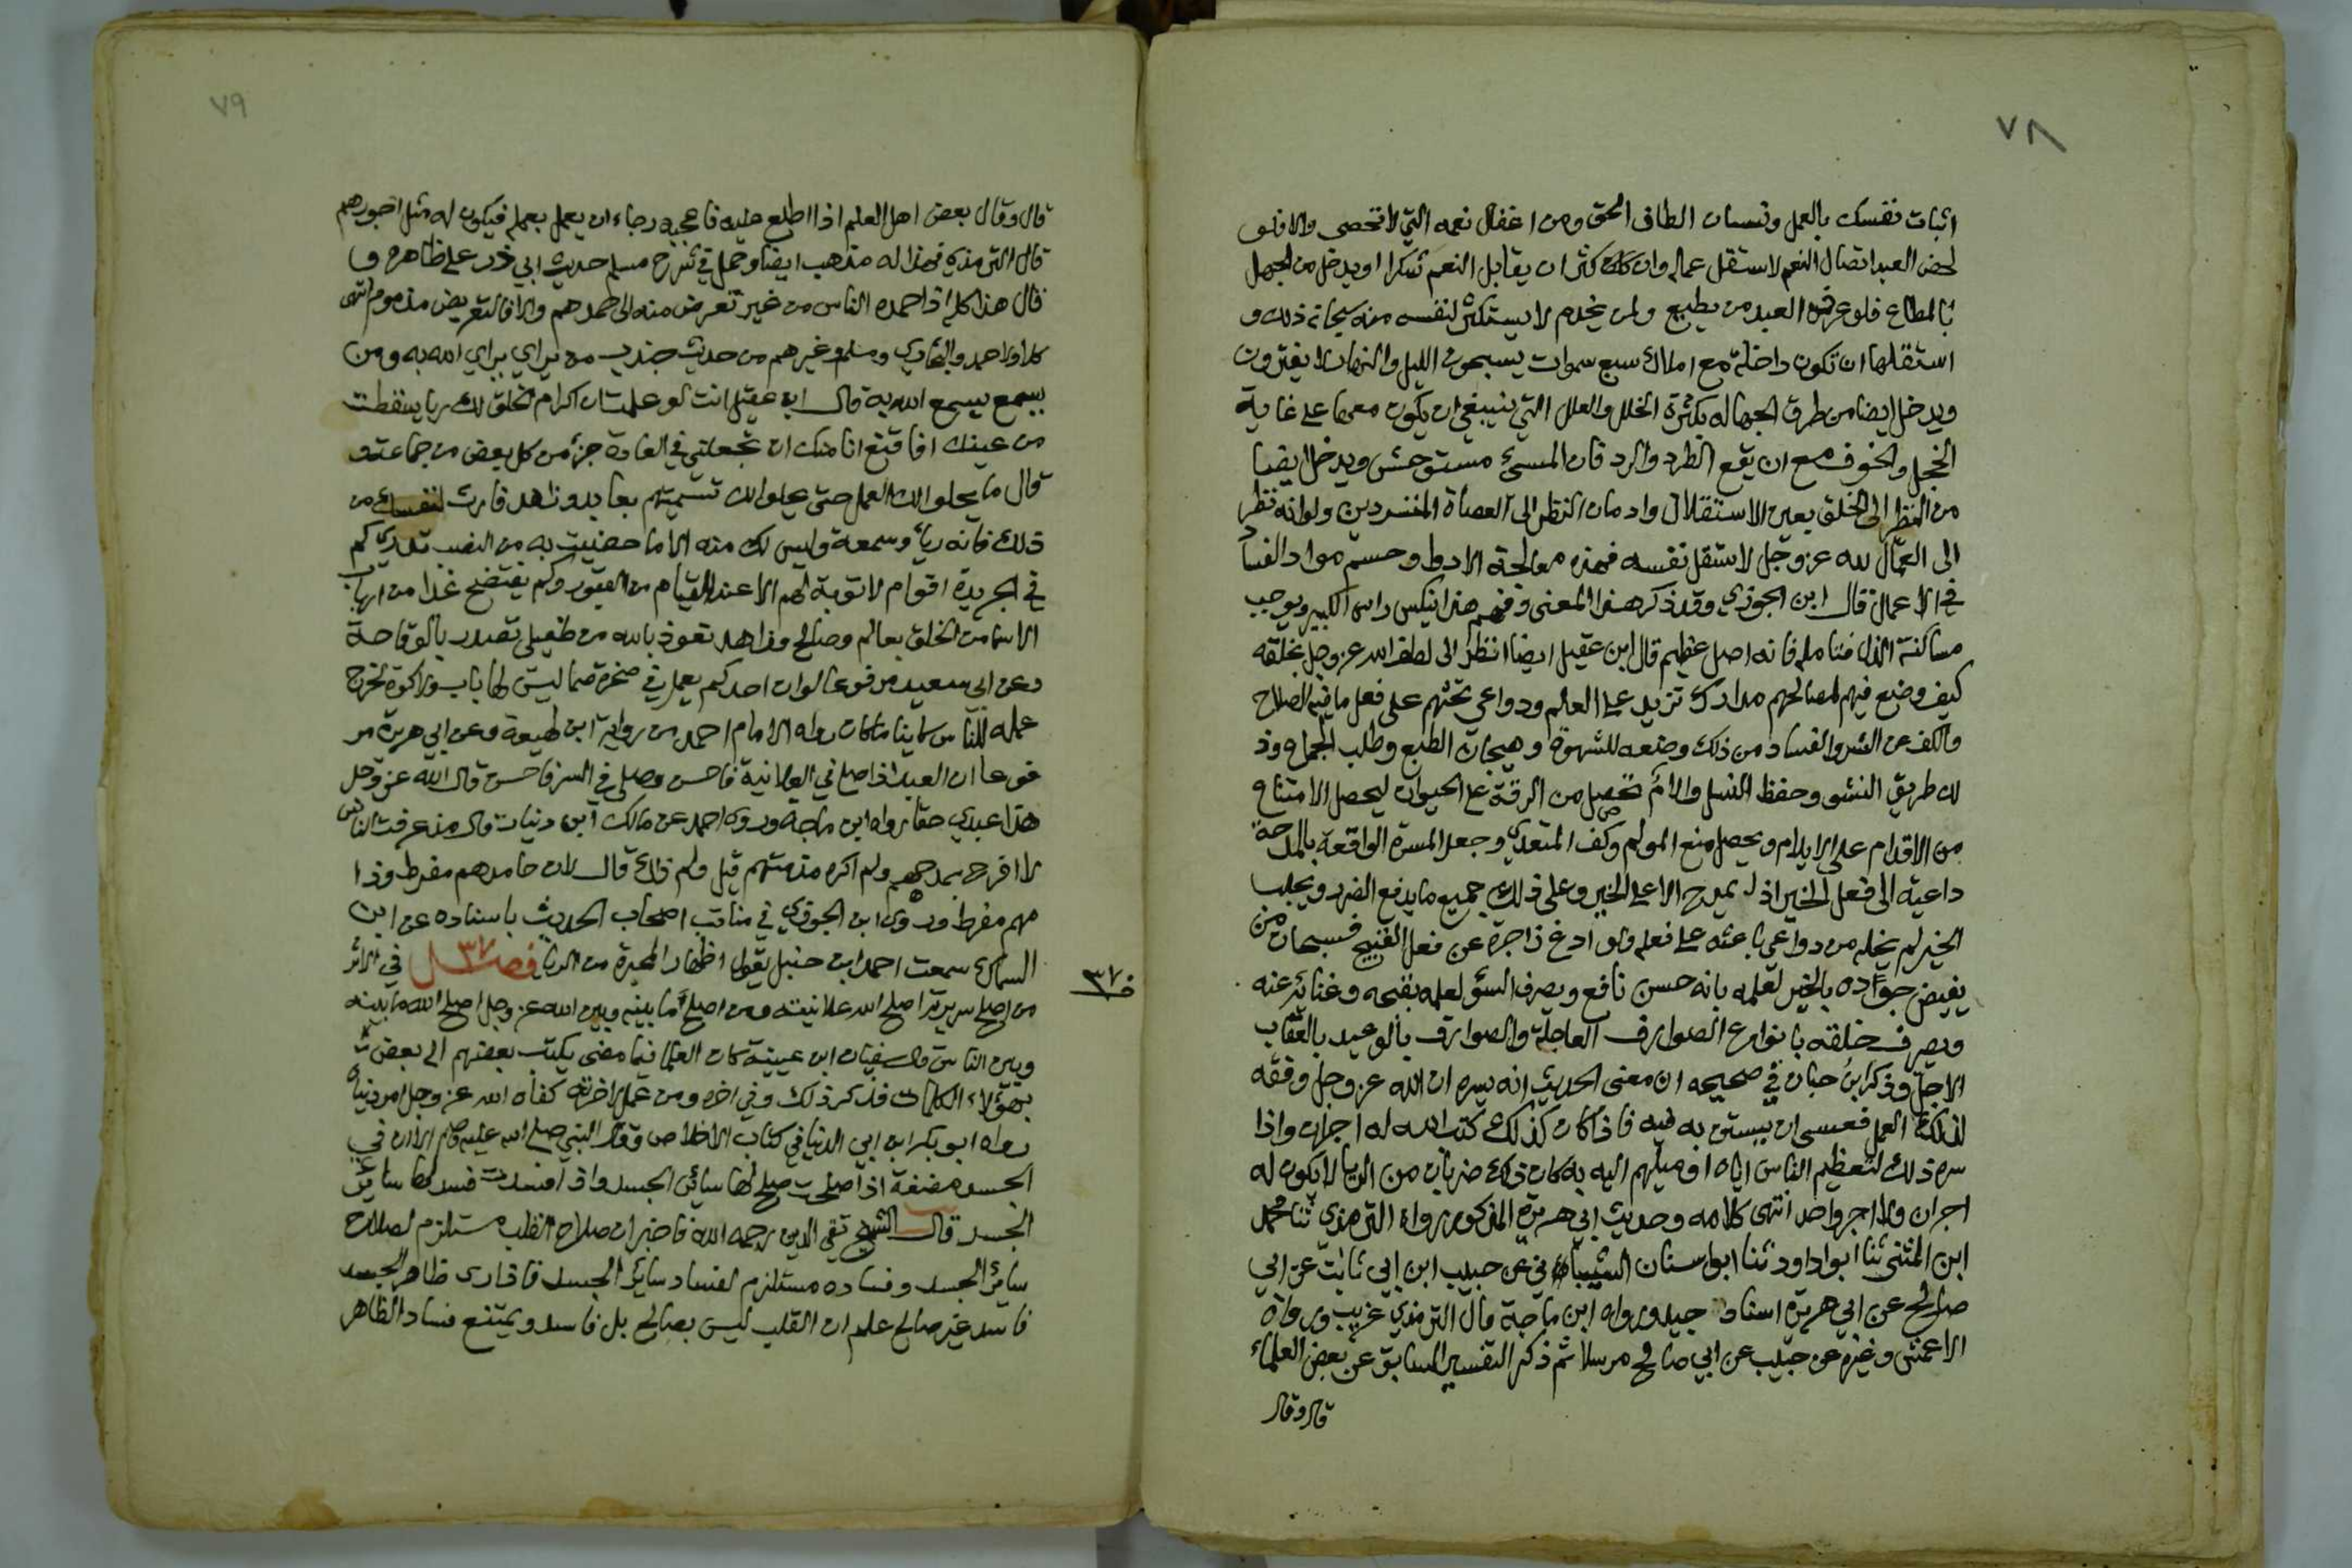 ٧٨
اثبات نفسك بالعمل ونسيان الطاف الحق ومن اغفال نعمه التي لا تحصى والا فلو
لحض العبد اتصال النعم لاستقل عماله وان كان كثر ان يقابل النعم شكرا او يدخل من الجهل
بالمطاع فلو عرف العبد من يطيع ولمن يخدم لا يستكثر لنفسه منه سبحانه ذلك و
استقلها ان تكون داخلة مع املاك سبع سموات يسبحون الليل والنهار لا يفترون
ويدخل ايضا من طرق الجهاله بكثرة الخلل والعلل التي ينبغي ان يكون معها على غاية
الخجل والخوف مع ان يقع الطرد والرد فان المسئ مستوحش ويدخل ايضا
من النظر الى الخلق بعين الاستقلال وادمان النظر الى العصاة المنشردين ولو انه نظر
الى العمال لله عز وجل لاستقل نفسه فهذه معالجة الادوا وحسم مواد الفساد
في الاعمال قال ابن الجوزي وقد ذكر هذا المعنى وفهم هذا ينكس راس الكبير ويوجب
مساكنة الذل فتامله فانه اصل عظيم قال ابن عقيل ايضا انظر الى لطف الله عز وجل بخلقه
كيف وضع فيهم لمصالحهم مدارك تزيد على العالم ودواعي تحثهم على فعل ما فيه الصلاح
والكف عن الشر والفساد من ذلك وضعه للشهوة وهيجان الطبع وطلب الجماع وذ
لك طريق النشو وحفظ النسل والالم تحصل من الرقة على الحيوان ليحصل الامتناع
من الاقدام على الايلام ويحصل منع المولم وكف المتعدي وجعل المسرة الواقعة بالمدحة
داعية الى فعل الخير اذ لا يمدح الا على الخير وعلى ذلك جميع ما يدفع الضرر ويجلب
الخير لم يخله من دواعي باعثه على فعله واودع زاجرة عن فعل القبيح فسبحان من
يفيض جواده بالخير لعلمه بانه حسن نافع ويصرف السؤ لعلمه بقبحه وغنائه عنه
ويصرف خلقه بانواع الصوارف العاجلة والصوارف بالوعيد بالعقاب
الاجل وذكر ابن حبان في صحيحه ان معنى الحديث انه يسره ان الله عز وجل وفقه
لذلك العمل فعسى ان يستن به فيه فاذا كان كذلك كتب الله له اجران واذا
سره ذلك لتعظيم الناس اياه او ميلهم اليه به كان ذلك ضربان من الريا لا يكون له
اجران ولا اجر واحد انتهى كلامه وحديث ابي هريرة المذكور رواه الترمذي ثنا محمد
ابن المثنى ثنا ابو داود ثنا ابو سنان الشيباني عن حبيب ابن ابي ثابت عن ابي
صالح عن ابي هريرة اسناد جيد ورواه ابن ماجة قال الترمذي غريب ورواه
الاعمش وغيره عن حبيب عن ابي صالح مرسلا ثم ذكر التفسير السابق عن بعض العلماء
قال وقال
٧٩
قال وقال بعض اهل العلم اذا اطلع عليه فاعجبه رجاء ان يعمل بعمله فيكون له مثل اجورهم
قال الترمذي فهذا له مذهب ايضا وحمل في شرح مسلم حديث ابي ذر على ظاهره و
قال هذا كله اذا حمده الناس من غير تعرض منه الى حمدهم والا فالتعريض مذموم انتهى
كلامه ولاحمد والبخاري ومسلم وغيرهم من حديث جندب من يرائي يرائي الله به ومن
يسمع يسمع الله به قال ابن عقيل انت لو علمت ان اكرام الخلق لك ريا سقطت
من عينك افاقنع انا منك ان تجعلني في العادة جزء من كل بعض من جماعة و
قال ما يحلوا لك العمل حتى يحلوا لك تسميتهم بعابد وزاهد فارث لنفسك من
ذلك فانه رياء وسمعة وليس لك منه الا ما حضيت به من النصب تدري كم
في الجريدة اقوام لا توبة لهم الا عند القيام من القبور وكم يفتضح غدا من ارباب
الاسما من الخلق بعالم وصالح وزاهد نعوذ بالله من طفيلي تصدر بالوقاحة
وعن ابي سعيد مرفوعا لو ان احدكم يعمل في صخرة صما ليس لها باب ولا كوة لخرج
عمله للناس كاينا ما كان رواه الامام احمد من رواية ابن لهيعة وعن ابي هريرة مر
فوعا ان العبد اذا صلى في العلانية فاحسن وصلى في السر فاحسن قال الله عز وجل
هذا عبدي حقا رواه ابن ماجة وروى احمد عن مالك ابن دينار قال منذ عرفت الناس
لا افرح بمدحهم ولم اكره مذمتهم قيل ولم ذلك قال لان حامدهم مفرط وذا
مهم مفرط وروى ابن الجوزي في مناقب اصحاب الحديث باسناده عن ابن
السماك سمعت احمد ابن حنبل يقول اظهار المحبرة من الريا فصل ٣٧ في الاثر
ف ٣٧
من اصلح سريرته اصلح الله علانيته ومن اصلح ما بينه وبين الله عز وجل اصلح الله ما بينه
وبين الناس قال سفيان ابن عيينة كان العلما فيما مضى يكتب بعضهم الى بعض
بهؤلاء الكلمات فذكر ذلك وفي اخره ومن عمل لاخرته كفاه الله عز وجل امر دنياه
رواه ابو بكر ابن ابي الدنيا في كتاب الاخلاص وقال النبي صلى الله عليه وسلم الا ان في
الجسد مضغة اذا صلحت صلح لها سائر الجسد واذا فسدت فسد لها سائر
الجسد قال الشيخ تقي الدين رحمه الله فاخبر ان صلاح القلب مستلزم لصلاح
سائر الجسد وفساده مستلزم لفساد سائر الجسد فاذا رى ظاهر الجسد
فاسد غير صالح علم ان القلب ليس بصالح بل فاسد ويمتنع فساد الظاهر